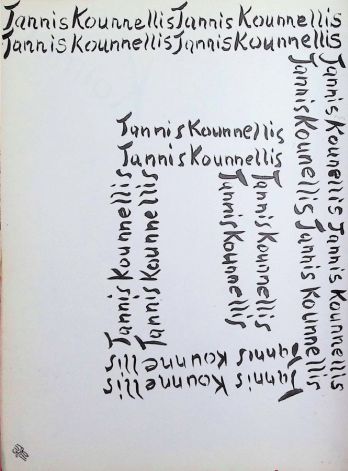 Jannis Kounnellis Jannis Kounnellis
Jannis Kounnellis Jannis Kounnellis
Jannis Kounnellis Jannis Kounnellis
Jannis Kounellis Jannis Kounellis
Jannis Kounnellis
Jannis Kounnellis
Jannis Kounnellis
Jannis Kounnellis
Jannis Kounnellis
Jannis Kounnellis
Jannis Kounnellis
Jannis Kounnellis